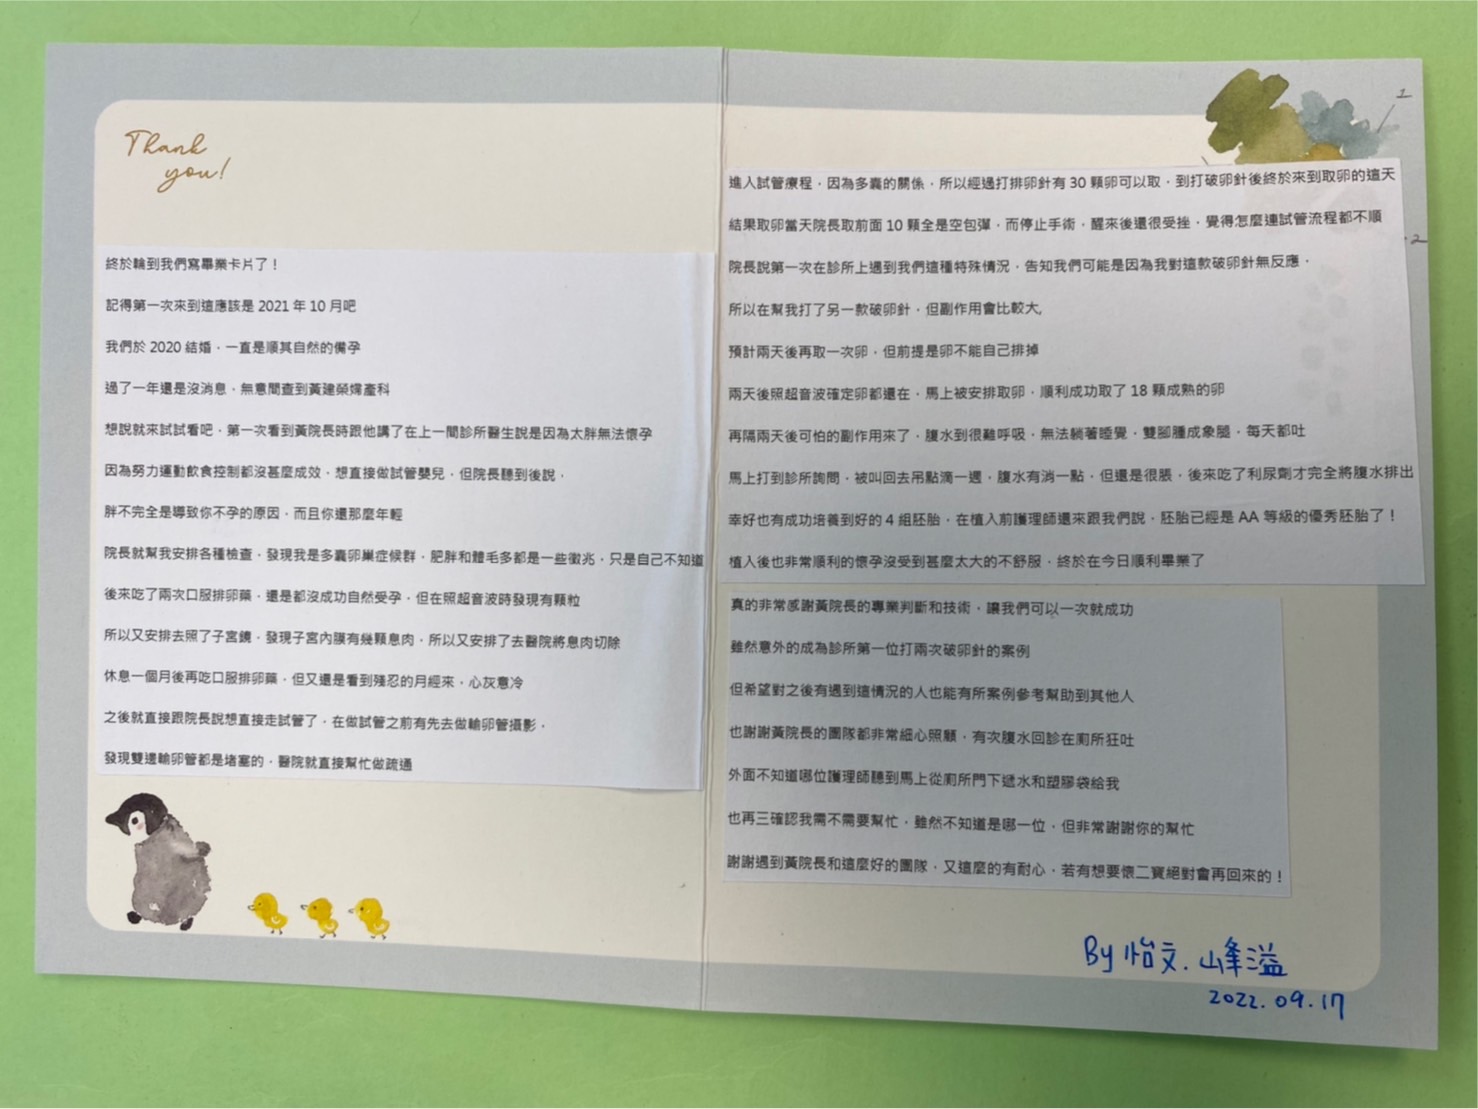 Thank
you!
終於輪到我們寫畢業卡片了！
記得第一次來到這應該是 2021 年 10 月吧
我們於 2020 結婚，一直是順其自然的備孕
過了一年還是沒消息，無意間查到黃建榮婦產科
想說就來試試看吧，第一次看到黃院長時跟他講了在上一間診所醫生說是因為太胖無法懷孕
因為努力運動飲食控制都沒甚麼成效，想直接做試管嬰兒，但院長聽到後說，
胖不完全是導致你不孕的原因，而且你還那麼年輕
院長就幫我安排各種檢查，發現我是多囊卵巢症候群，肥胖和體毛多都是一些徵兆，只是自己不知道
後來吃了兩次口服排卵藥，還是都沒成功自然受孕，但在照超音波時發現有顆粒
所以又安排去照了子宮鏡，發現子宮內膜有幾顆息肉，所以又安排了去醫院將息肉切除
休息一個月後再吃口服排卵藥，但又還是看到殘忍的月經來，心灰意冷
之後就直接跟院長說想直接走試管了，在做試管之前有先去做輸卵管攝影，
發現雙邊輸卵管都是堵塞的，醫院就直接幫忙做疏通
1
進入試管療程，因為多囊的關係，所以經過打排卵針有 30 顆卵可以取，到打破卵針後終於來到取卵的這天
結果取卵當天院長取前面 10 顆全是空包彈，而停止手術，醒來後還很受挫，覺得怎麼連試管流程都不順
2
院長說第一次在診所上遇到我們這種特殊情況，告知我們可能是因為我對這款破卵針無反應，
所以在幫我打了另一款破卵針，但副作用會比較大,
預計兩天後再取一次卵，但前提是卵不能自己排掉
兩天後照超音波確定卵都還在，馬上被安排取卵，順利成功取了 18 顆成熟的卵
再隔兩天後可怕的副作用來了，腹水到很難呼吸，無法躺著睡覺，雙腳腫成象腿，每天都吐
馬上打到診所詢問，被叫回去吊點滴一週，腹水有消一點，但還是很脹，後來吃了利尿劑才完全將腹水排出
幸好也有成功培養到好的 4 組胚胎，在植入前護理師還來跟我們說，胚胎已經是 AA 等級的優秀胚胎了！
植入後也非常順利的懷孕沒受到甚麼太大的不舒服，終於在今日順利畢業了
真的非常感謝黃院長的專業判斷和技術，讓我們可以一次就成功
雖然意外的成為診所第一位打兩次破卵針的案例
但希望對之後有遇到這情況的人也能有所案例參考幫助到其他人
也謝謝黃院長的團隊都非常細心照顧，有次腹水回診在廁所狂吐
外面不知道哪位護理師聽到馬上從廁所門下遞水和塑膠袋給我
也再三確認我需不需要幫忙，雖然不知道是哪一位，但非常謝謝你的幫忙
謝謝遇到黃院長和這麼好的團隊，又這麼的有耐心，若有想要懷二寶絕對會再回來的！
By 怡文. 峰溢
2022.09.17